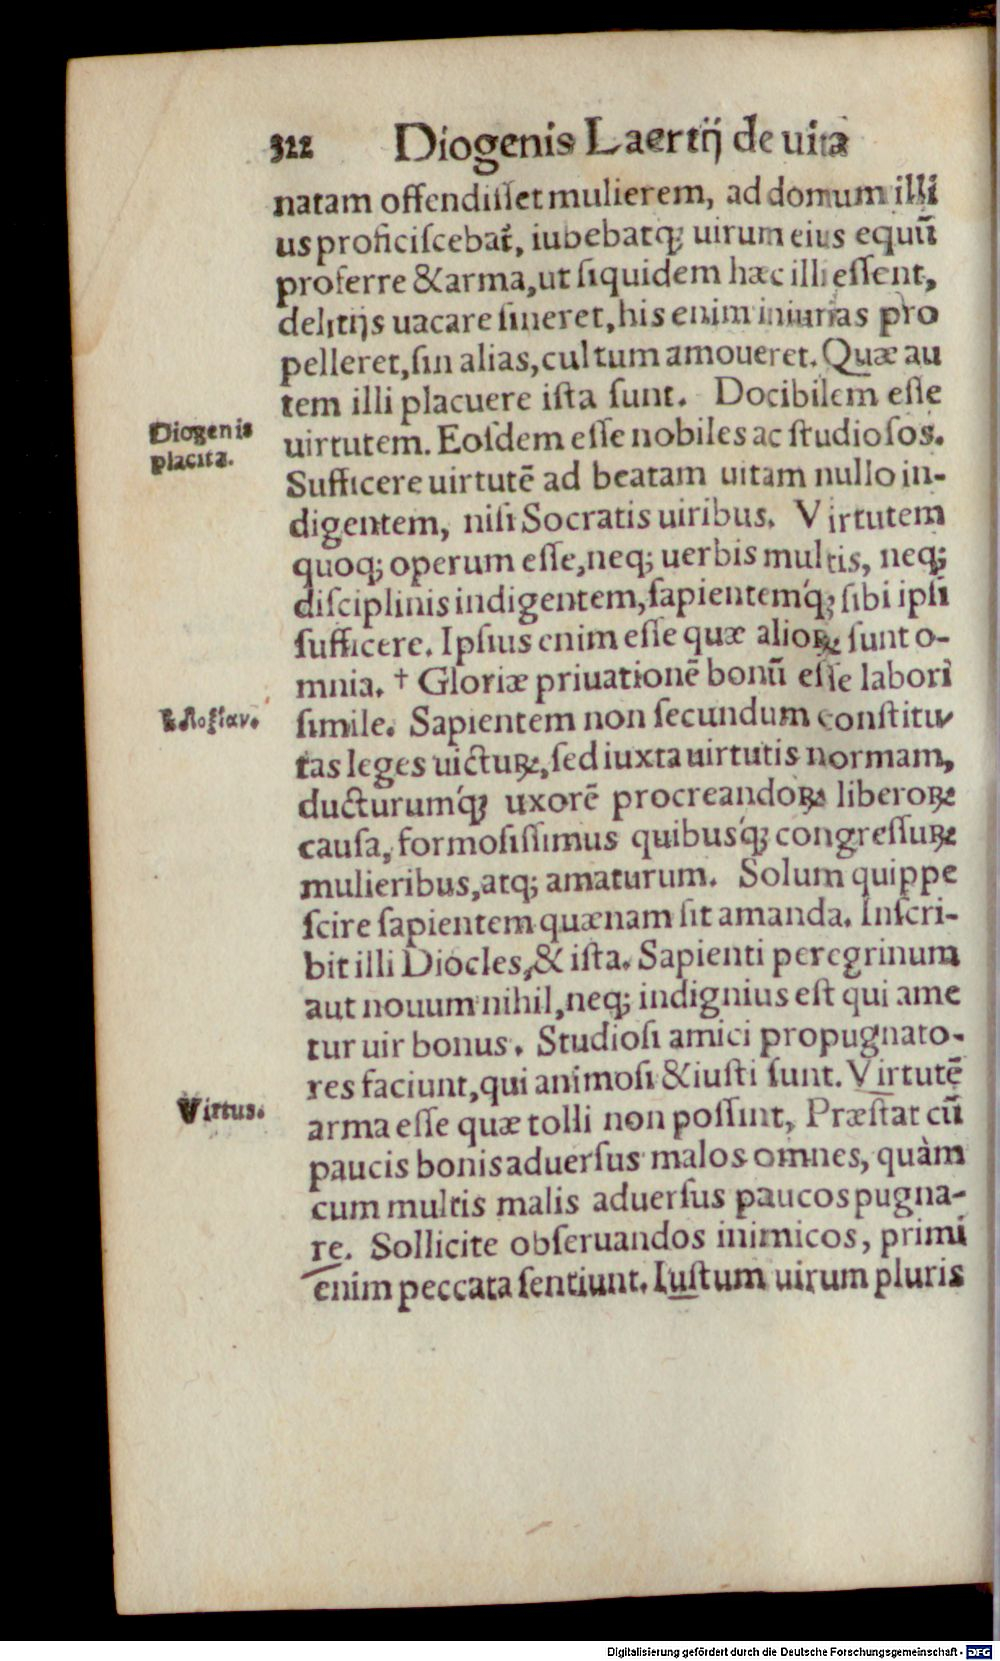 322 Diogenis Laertij de uita
natam offendiſſet mulierem, ad domum illi
us proficiſcebat, iubebatq; uirum eius equũ
proferre & arma, ut ſiquidem hæc illi eſſent,
delitijs uacare ſineret, his enim iniurias pro
pelleret, ſin alias, cultum amoueret. Quæ au
tem illi placuere iſta ſunt. Docibilem eſſe
Diogenis
placita.
uirtutem. Eoſdem eſſe nobiles ac ſtudioſos.
Sufficere uirtutẽ ad beatam uitam nullo in-
digentem, niſi Socratis uiribus. Virtutem
quoq; operum eſſe, neq; uerbis multis, neq;
diſciplinis indigentem, ſapientemq́; ſibi ipſi
ſufficere. Ipſius enim eſſe quæ alioꝝ ſunt o-
mnia. † Gloriæ priuationẽ bonũ eſſe labori
ἀδοξίαν.
ſimile. Sapientem non ſecundum conſtitu
tas leges uictuꝝ, ſed iuxta uirtutis normam,
ducturumq́; uxorẽ procreandoꝝ liberoꝝ
cauſa, formoſiſſimus quibusq́; congreſſuꝝ
mulieribus, atq; amaturum. Solum quippe
ſcire ſapientem quænam ſit amanda. Inſcri-
bit illi Diocles, & iſta. Sapienti peregrinum
aut nouum nihil, neq; indignius eſt qui ame
tur uir bonus. Studioſi amici propugnato-
res faciunt, qui animoſi & iuſti ſunt. Virtutẽ
Virtus.
arma eſſe quæ tolli non poſſint, Præſtat cũ
paucis bonis aduerſus malos omnes, quàm
cum multis malis aduerſus paucos pugna-
re. Sollicite obſeruandos inimicos, primi
enim peccata ſentiunt. Iuſtum uirum pluris
Digitalisierung gefördert durch die Deutsche Forschungsgemeinschaft - DFG